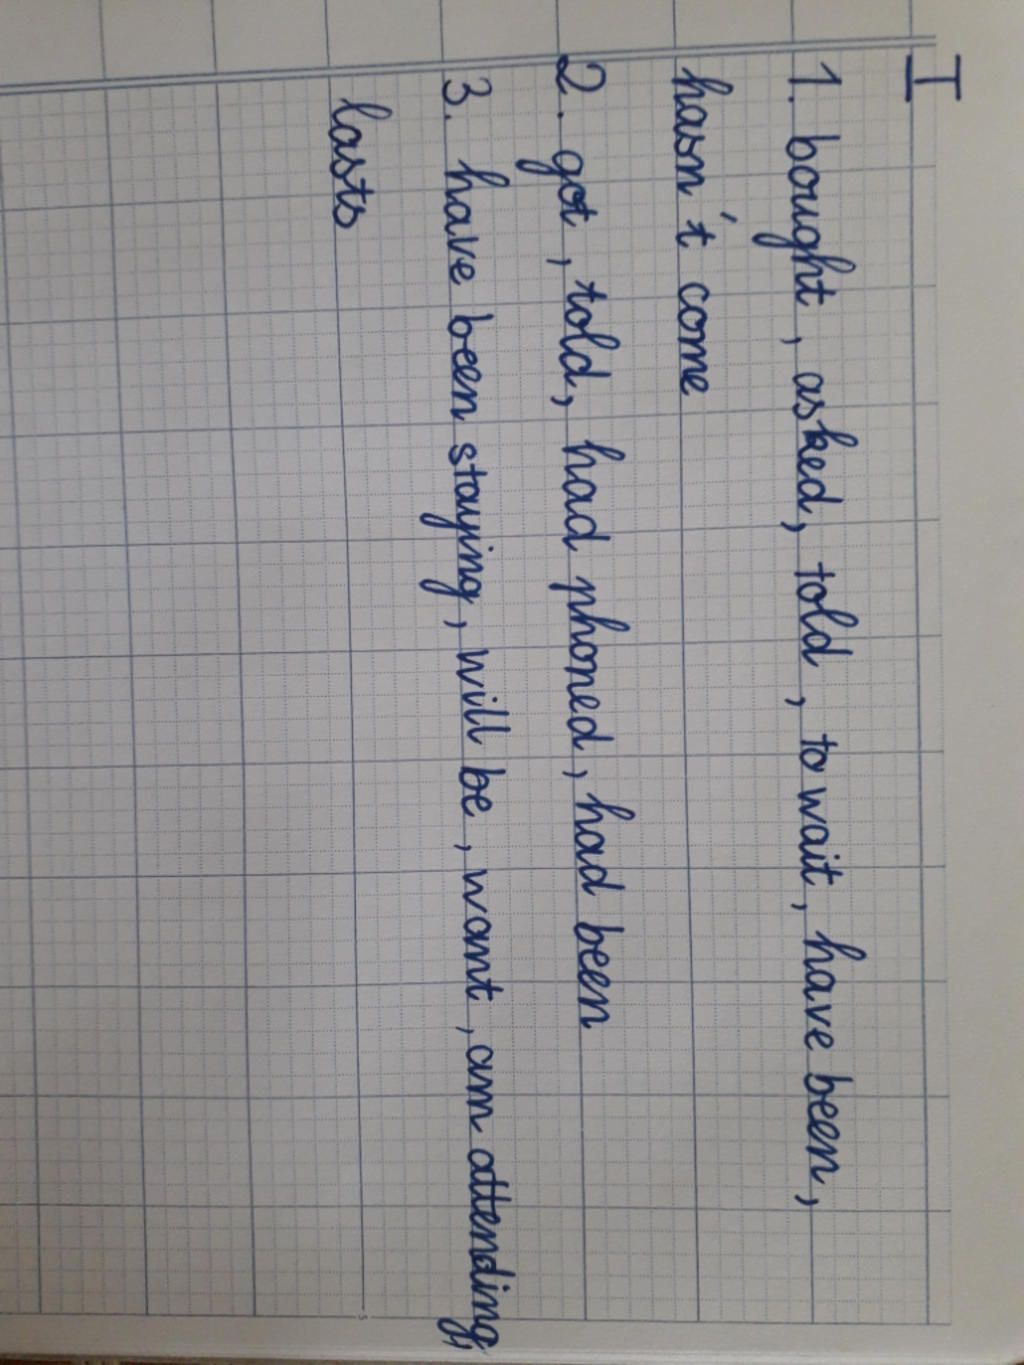 I
1. bought, asked, told, to wait, have been,
hasn't come
2. got, told, had phoned, had been
3. have been staying, will be, want, am attending,
lasts